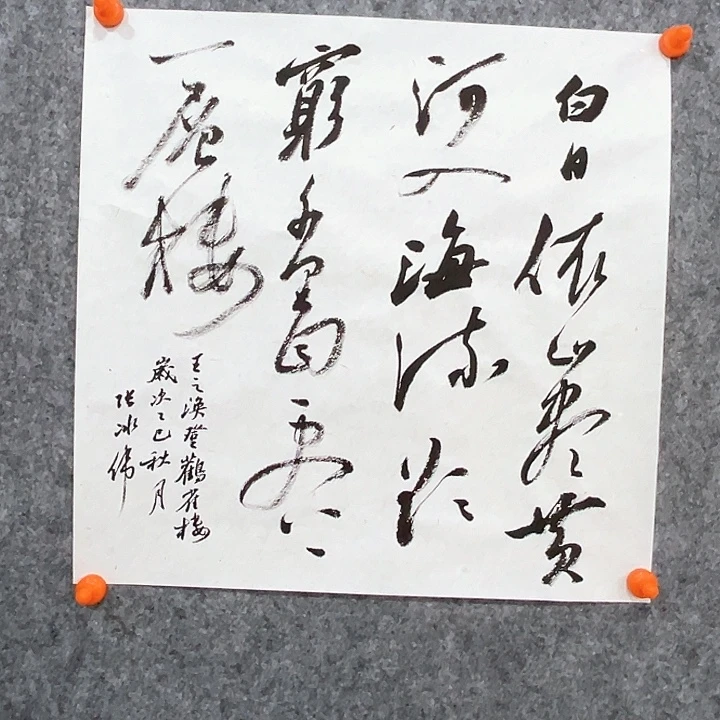 白日依山尽黄
河入海流欲
穷千里目更上
一层楼
王之涣登鹳雀楼
岁次乙巳秋月
张冰伟